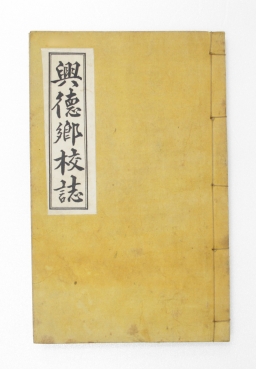 興德鄉校誌